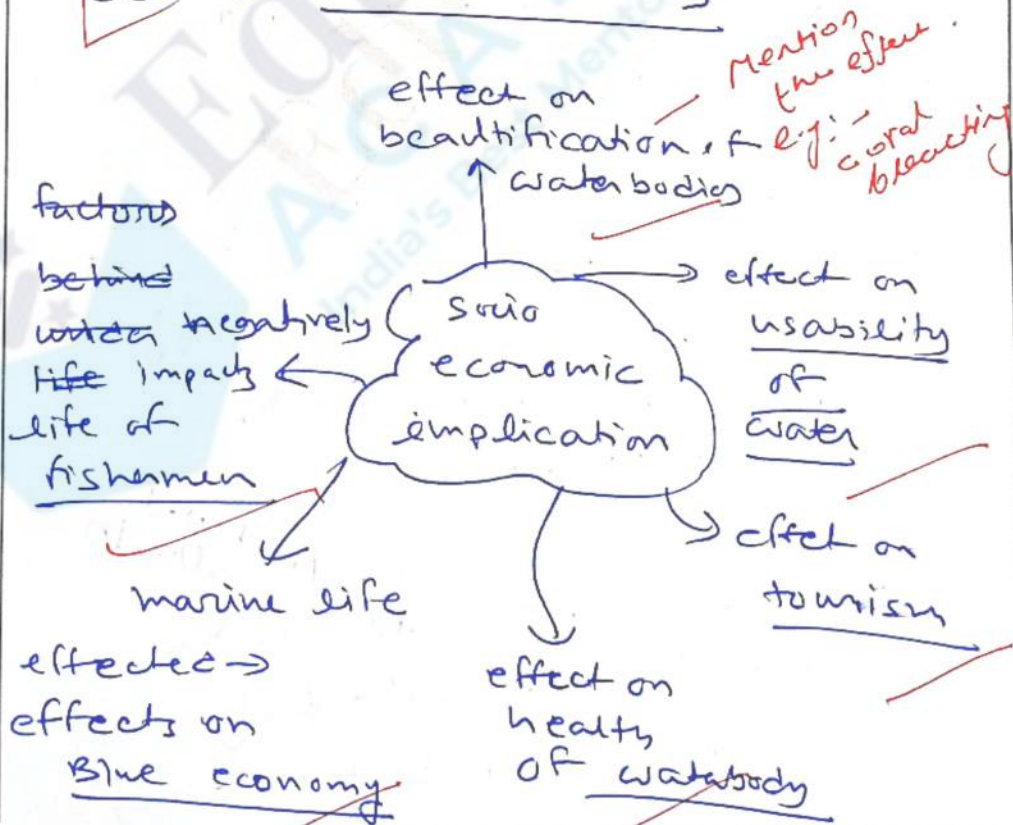 effect on
beautification of
waterbodies
Mention
the effect.
e.g:-
coral
bleaching
factors
behind
negatively
life impacts
life of
fishermen
Socio
economic
implication
effect on
usability
of
water
effect on
tourism
marine life
effected →
effects on
Blue economy
effect on
health
of waterbody
India's Best Mento